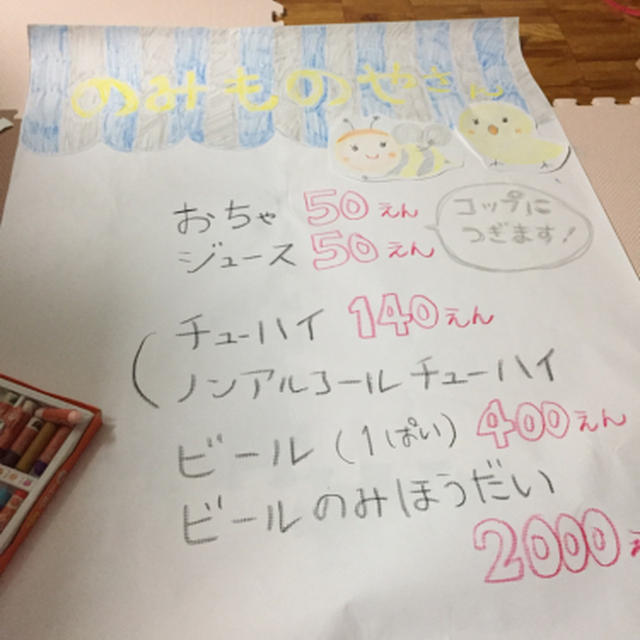 のみものやさん
おちゃ 50えん
ジュース 50えん
コップに
つぎます!
チューハイ 140えん
ノンアルコールチューハイ
ビール(1ぱい) 400えん
ビールのみほうだい
2000え